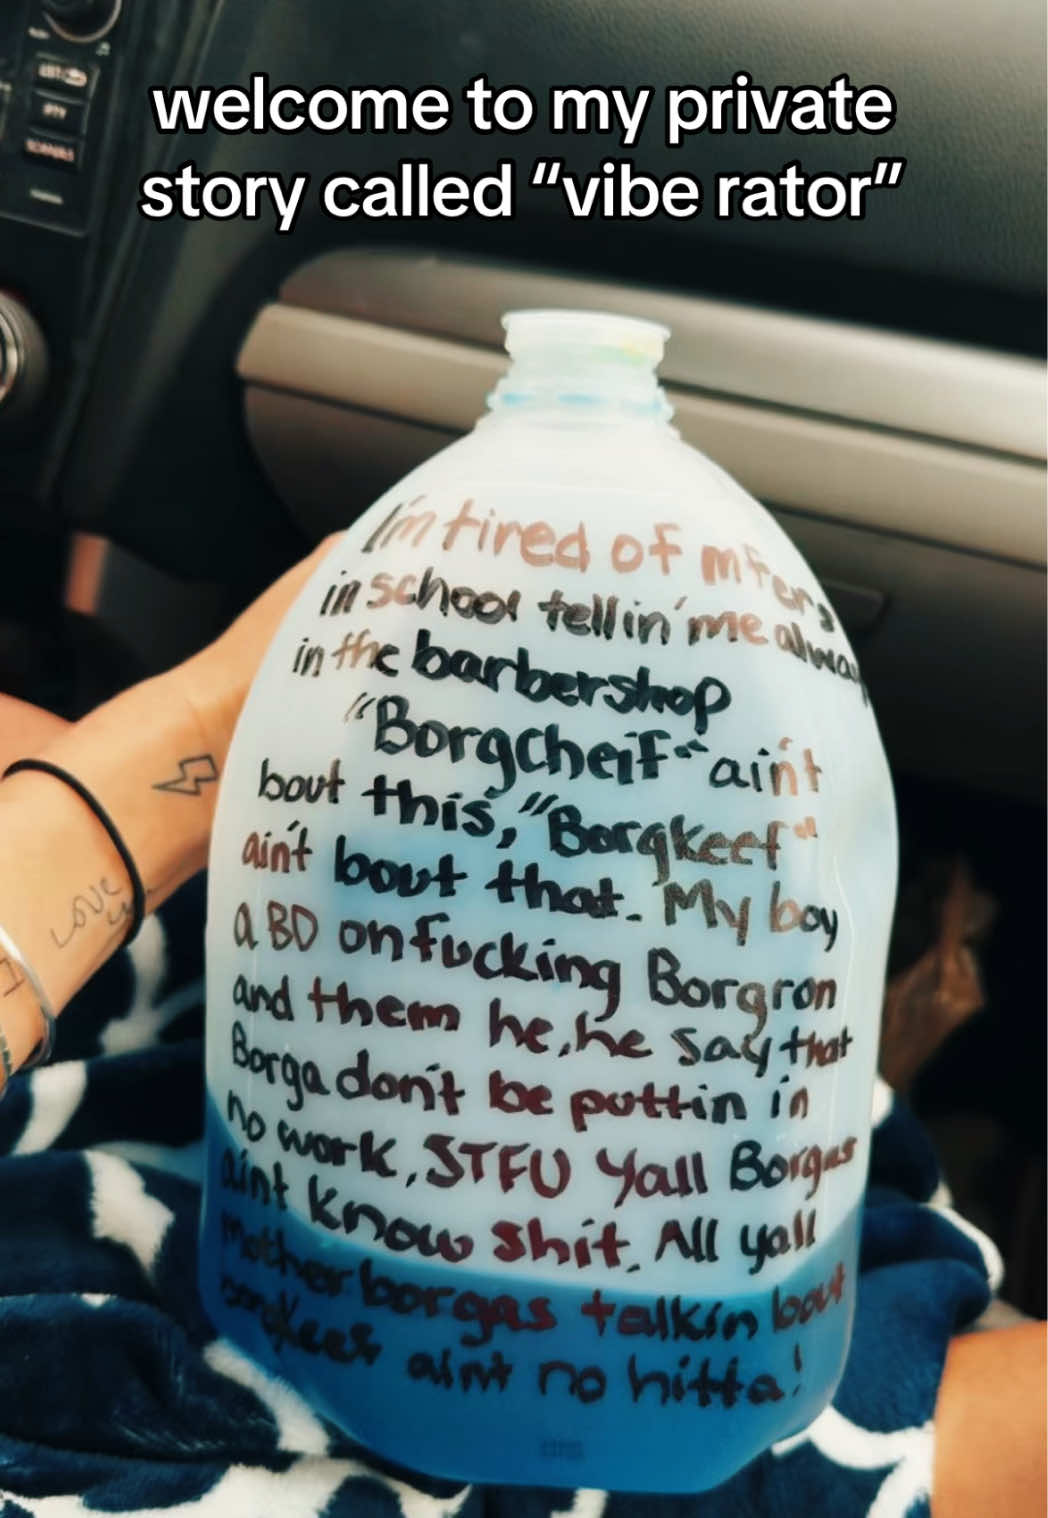 welcome to my private
story called “vibe rator”
I'm tired of mfers
in school tellin' me alway
in the barbershop
"Borgcheif" ain't
bout this, "Borgkeef"
ain't bout that. My boy
a BD on fucking Borgron
and them he, he say that
Borga don't be puttin in
no work, STFU Yall Borgas
aint know shit. All yall
Mother borgas talkin bout
aint no hitta!
LOVE